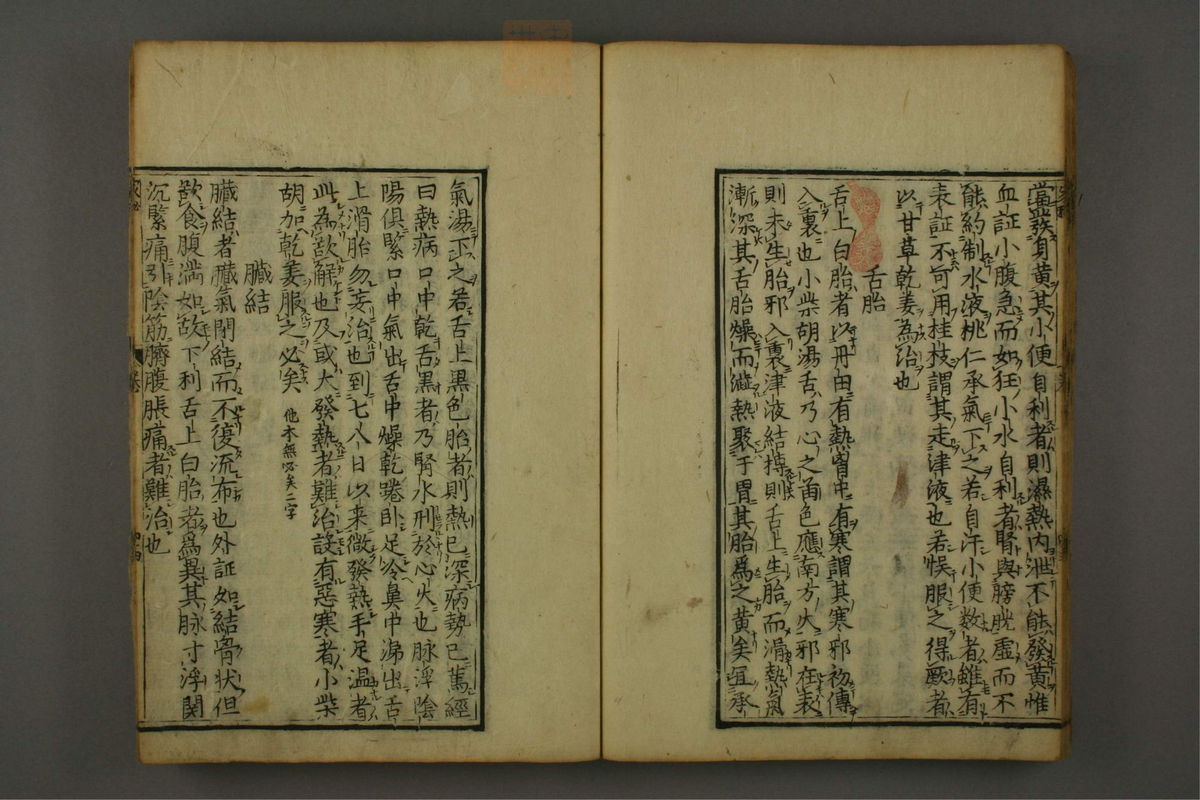 當發身黄其小便自利者則濕熱内泄不能發黄惟
血証小腹急而如狂小水自利者腎與膀胱虚而不
能約制水液桃仁承氣下之若自汗小便数者雖有
表証不可用桂枝謂其走津液也若悮服之得厥者
以甘草乾姜為治也
舌胎
舌上白胎者以丹田有熱胷中有寒謂其寒邪初傳
入裏也小柴胡湯舌乃心之苗色應南方火邪在表
則未生胎邪入裏津液結搏則舌上生胎而滑熱氣
漸深其舌胎燥而澁熱聚于胃其胎為之黄矣宜承
氣湯下之若舌上黒色胎者則熱已深病勢已篤經
曰熱病口中乾舌黒者乃腎水刑於心火也脉浮陰
陽俱緊口中氣出舌中燥乾踡卧足冷鼻中涕出舌
上滑胎勿妄治也到七八日以来微發熱手足温者
此為欲解也及或大發熱者難治設有惡寒者小柴
胡加乾姜服之必矣 他本無必矣二字
臓結
臓結者臓氣閉結而不復流布也外証如結胷状但
飲食腹満如故下利舌上白胎者為異其脉寸浮関
沉緊痛引陰筋臍腹脹痛者難治也